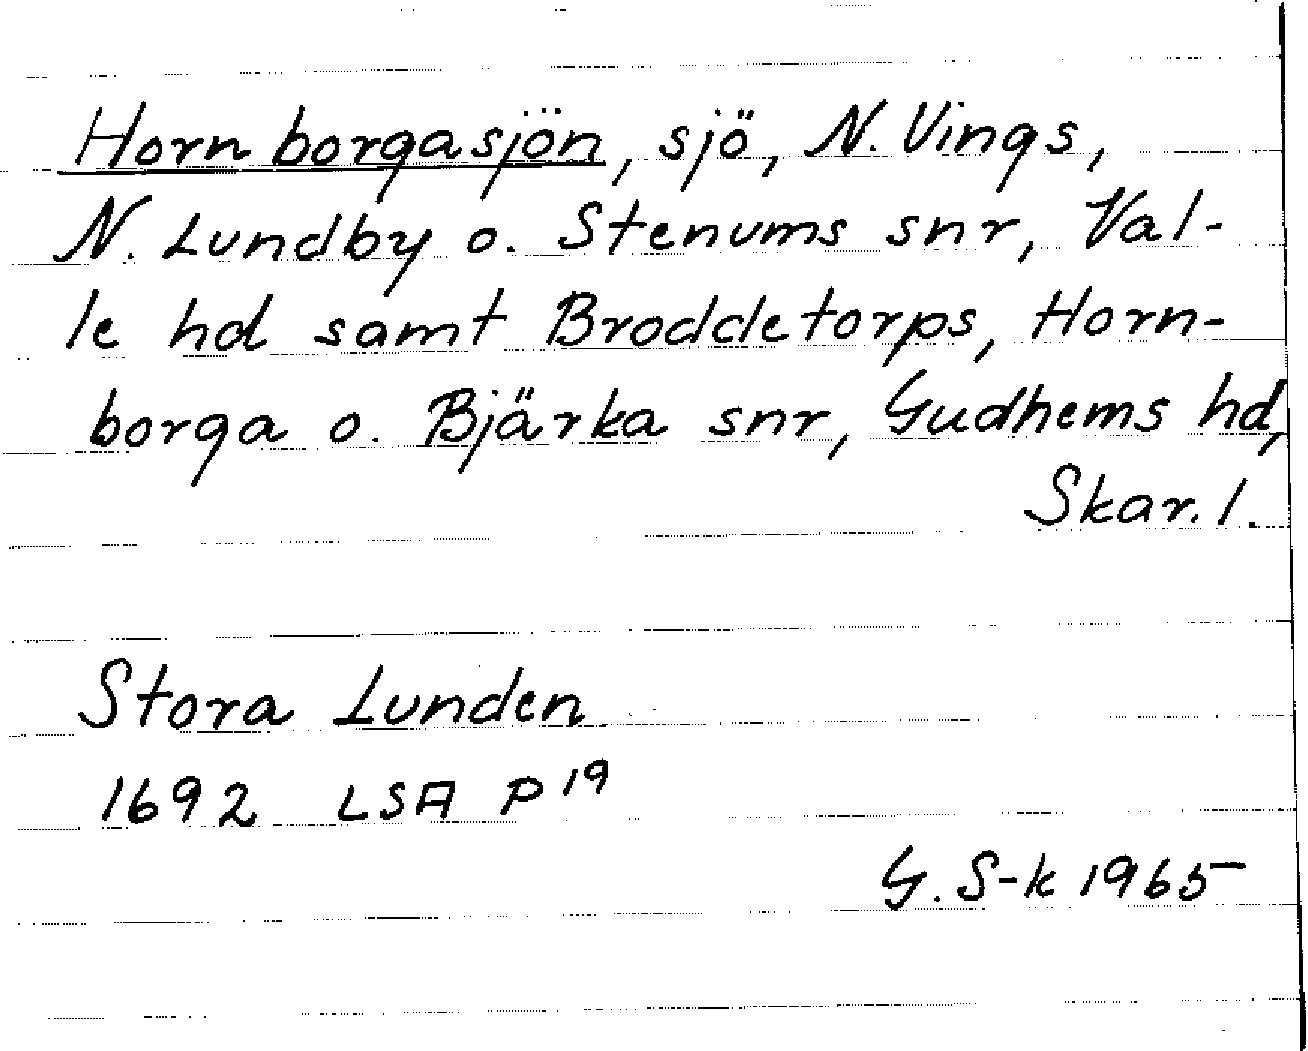 Hornborgasjön, sjö, N. Vings,
N. Lundby o. Stenums snr, Val-
le hd samt Broddetorps, Horn-
borga o. Bjärka snr, Gudhems hd,
Skar. l.
Stora Lunden
1692 LSA P 19
G. S-k 1965